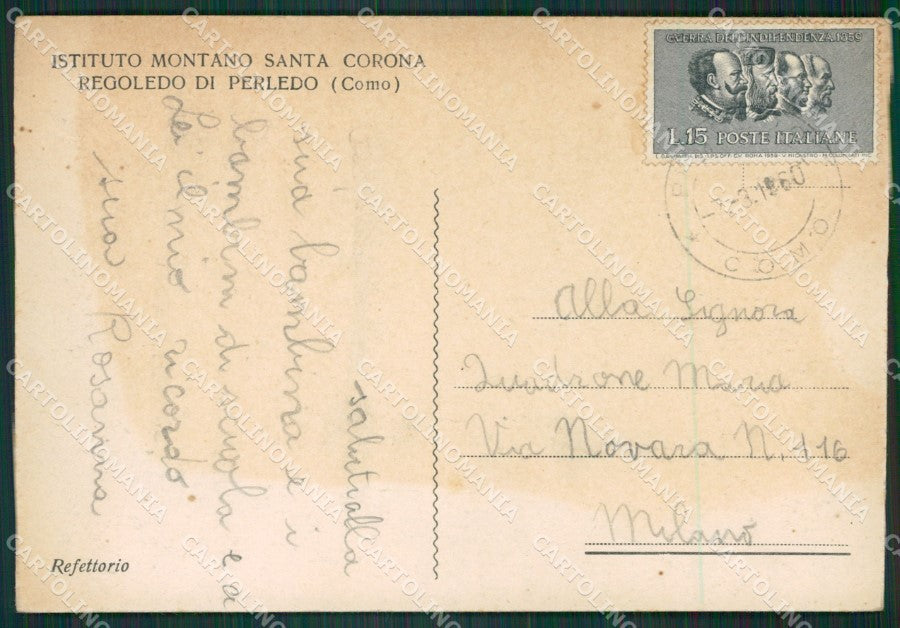 ISTITUTO MONTANO SANTA CORONA
REGOLEDO DI PERLEDO (Como)
saluti alla
sua bambina e i
bambini di suola e a
Lei il mio ricordo
sua Rosanna
Refettorio
GUERRA DELL'INDIPENDENZA 1859
L.15 POSTE ITALIANE
-3.1960
COMO
Alla Signora
Quadrone Maria
Via Novara N. 116
Milano
CARTOLINOMANIA